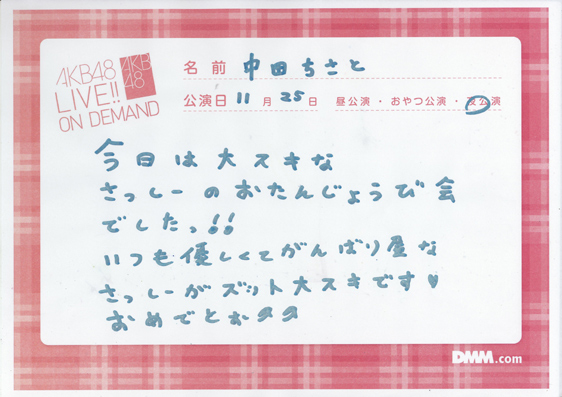 AKB48
LIVE!!
ON DEMAND
AKB
48
名前 中田ちさと
公演日 11月25日 昼公演・おやつ公演・夜公演
今日は大スキな
さっしーのおたんじょうび会
でしたっ!!
いつも優しくてがんばり屋な
さっしーがズット大スキです♥
おめでとぉ
DMM.com